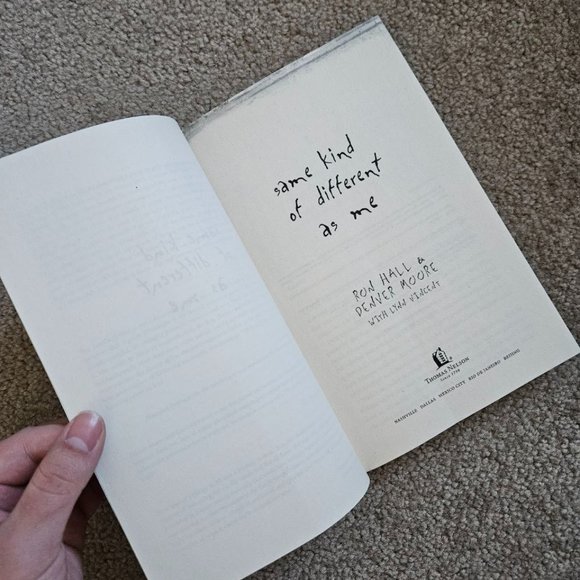 same kind
of different
as me
RON HALL &
DENVER MOORE
WITH LYNN VINCENT
THOMAS NELSON
Since 1798
NASHVILLE DALLAS MEXICO CITY RIO DE JANEIRO BEIJING